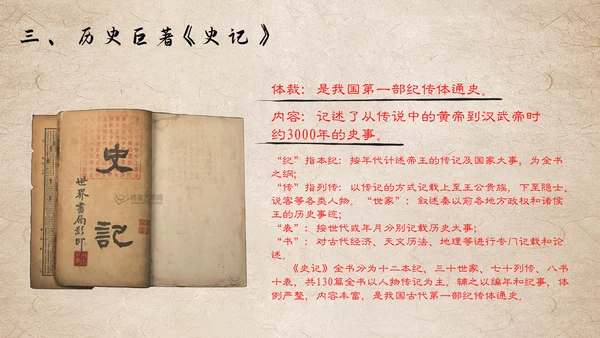 三、历史巨著《史记》
体裁：是我国第一部纪传体通史。
内容：记述了从传说中的黄帝到汉武帝时
约3000年的史事。
“纪”指本纪：按年代计述帝王的传记及国家大事，为全书
之纲；
“传”指列传：以传记的方式记载上至王公贵族，下至隐士、
说客等各类人物。“世家”：叙述秦以前各地方政权和诸侯
王的历史事迹；
“表”：按世代或年月分别记载历史大事；
“书”：对古代经济、天文历法、地理等进行专门记载和论
述。
《史记》全书分为十二本纪、三十世家、七十列传、八书
十表，共130篇全书以人物传记为主，辅之以编年和纪事，体
例严整，内容丰富，是我国古代第一部纪传体通史。
史记
世界书局影印